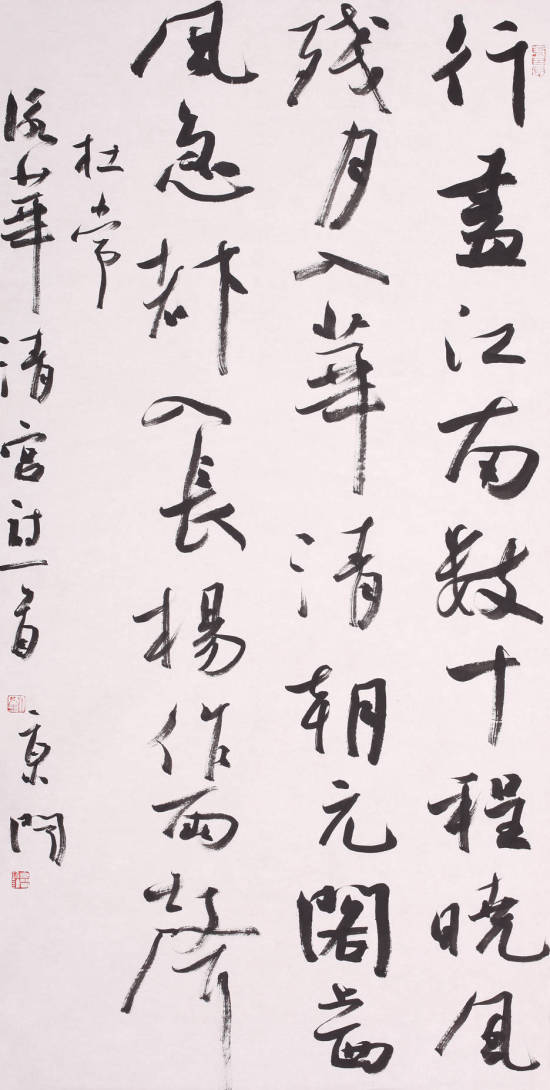 行盡江南數十程曉風
殘月入華清朝元閣上西
風急都入長楊作雨聲
杜常
詠華清宮詩一首